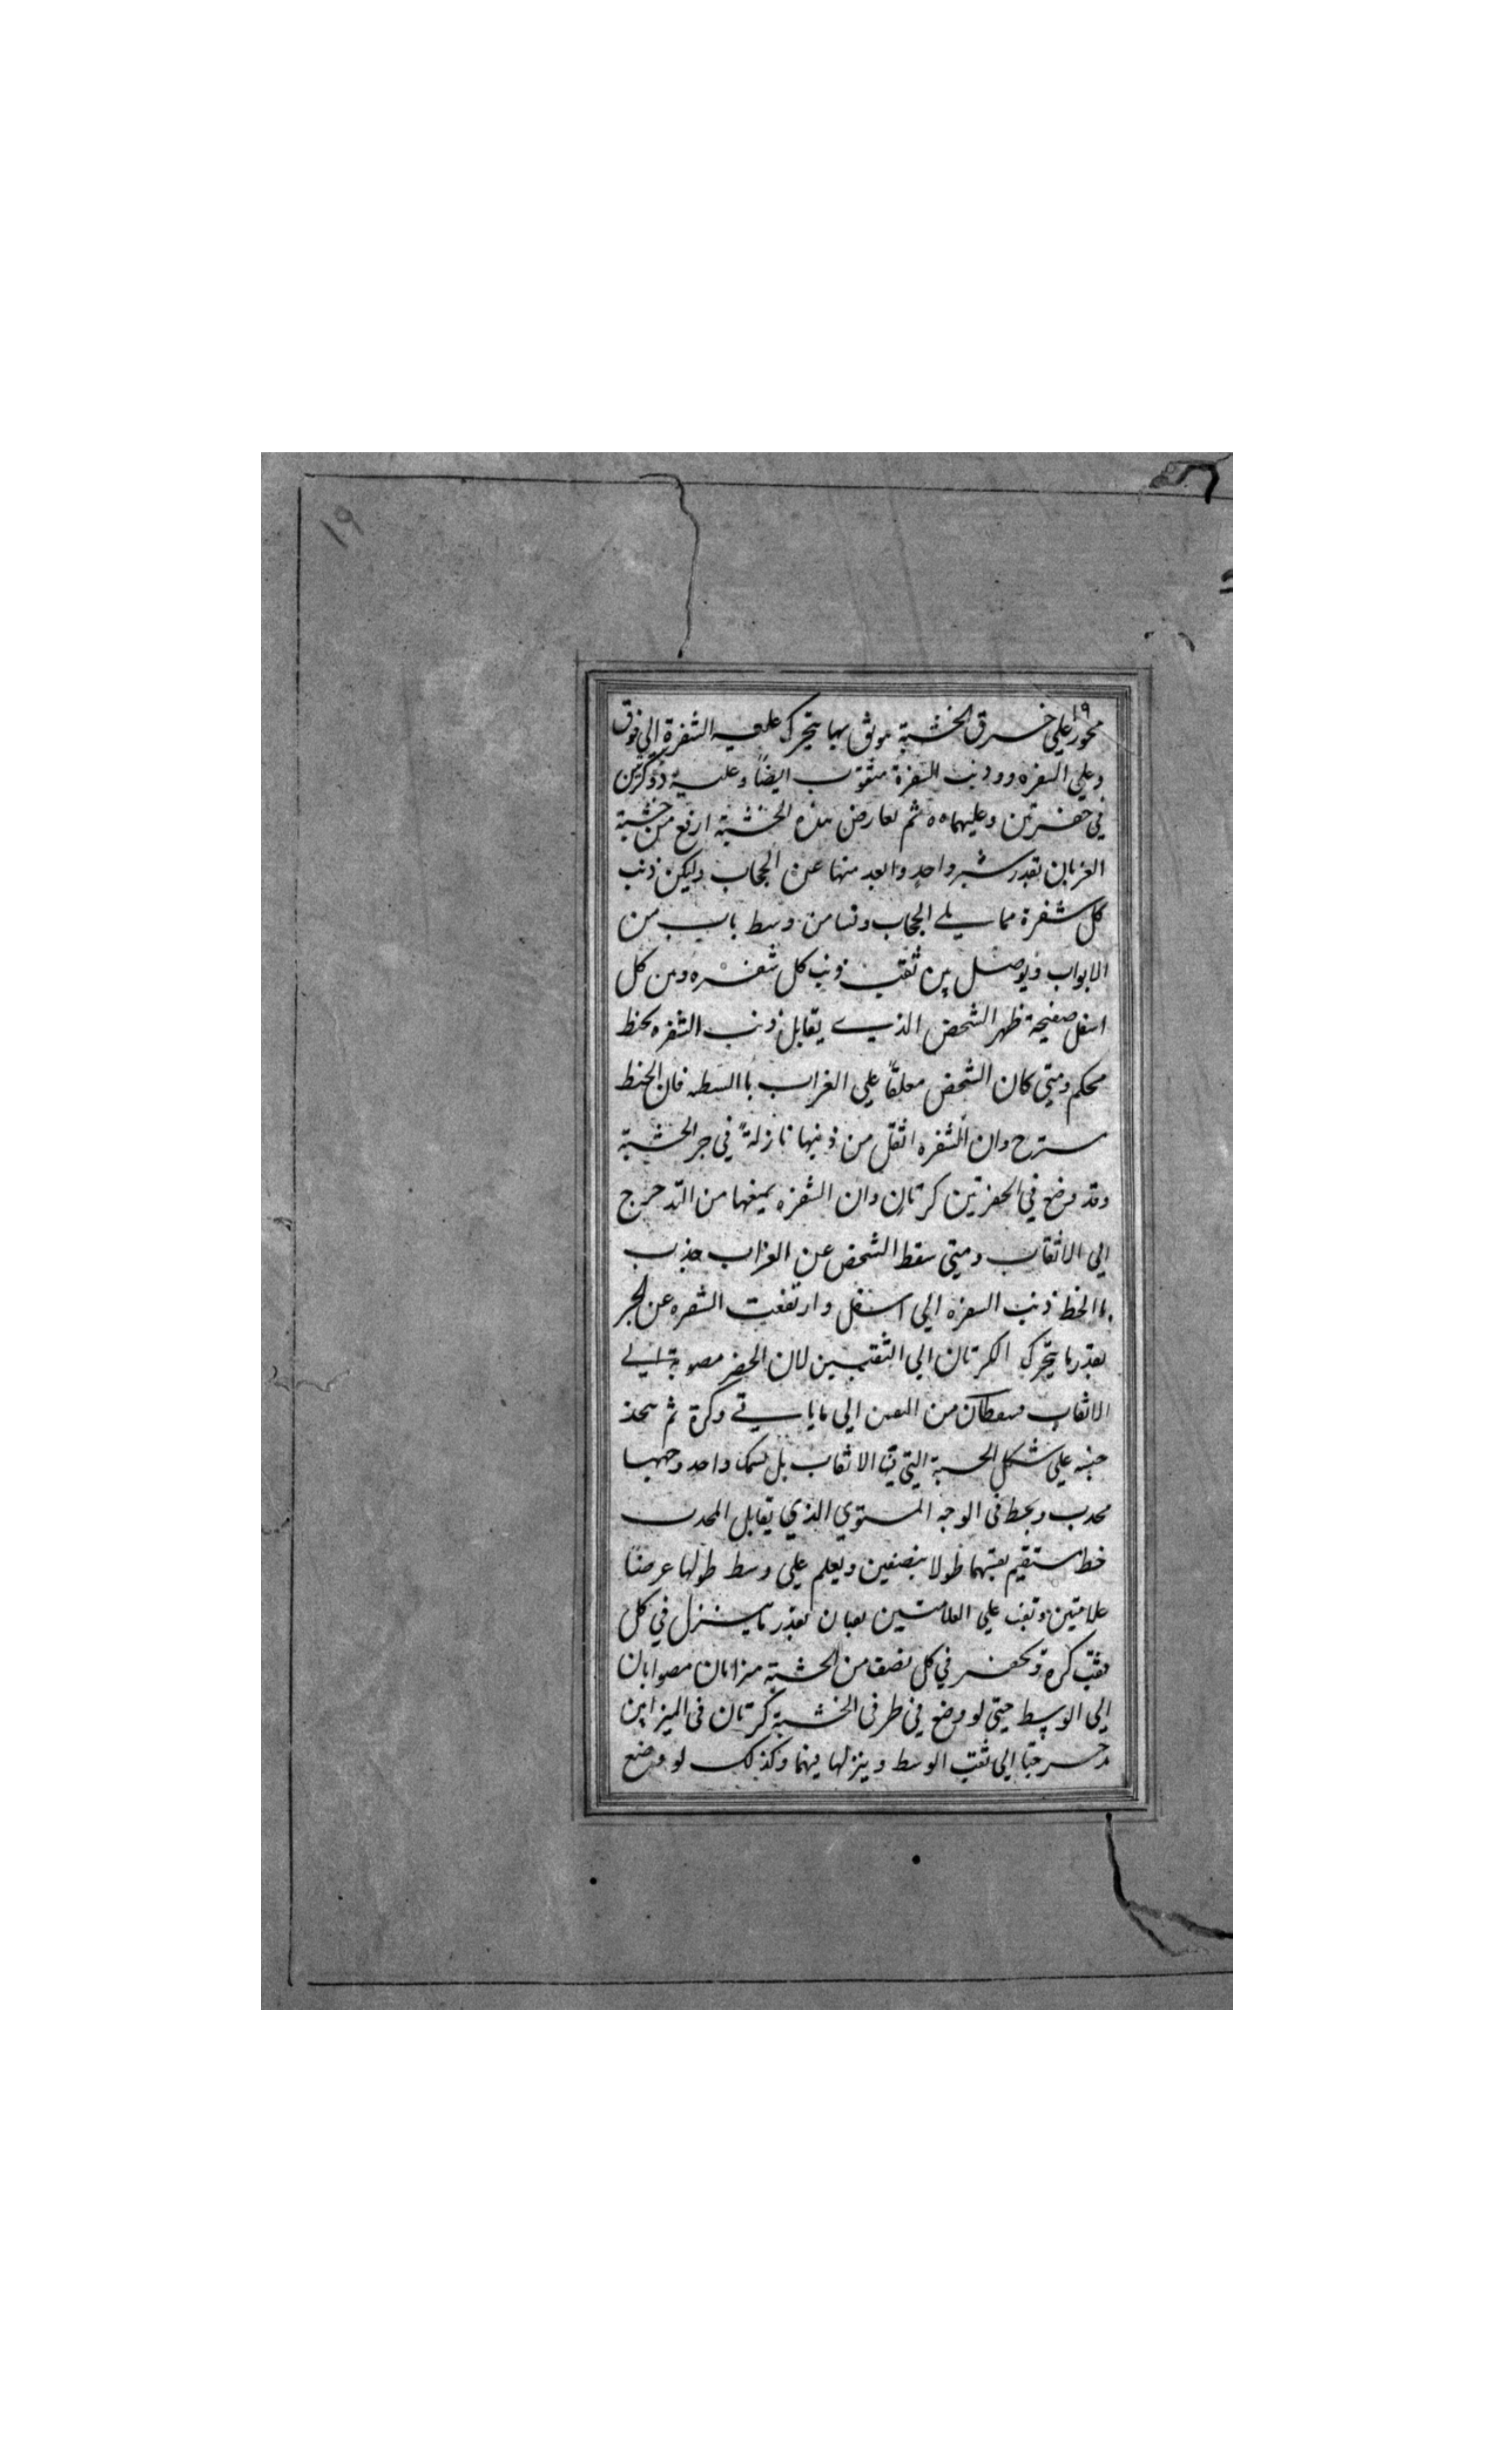 ١٩
١٩
محور علي خرق الخشبة موثق بها يتحرك عليه الشفرة الي فوق
وعلي السفره وو ذنب السفرة مثقوب ايضًا وعليه ذوكرتين
في حفرتين وعليهما ه ه ثم يعارض هذه الخشبة ارفع من خشبة
الغربان بقدر شبر واحد وابعد منها عن الحجاب وليكن ذنب
كل شفرة مما يلے الحجاب من وسط باب من
الابواب ويوصل بين ثقب ذنب كل شفره ومن كل
اسفل صفيحة ظهر الشخص الذي يقابل ذنب الشفره بخط
محكم ومتي كان الشخص معلقًا علي الغراب با السطه فان الخط
مسترح وان الشفره اثقل من ذنبها نازلةً في جر الخشبة
وقد وضع في الحفرتين كرتان وان الشفره يمنعها من التدحرج
الي الاثقاب ومتي سقط الشخص عن الغراب جذب
باالخط ذنب السفره الي اسفل وارتفعت الشفره عن الجر
بقدر ما يتحرك الكرتان الي الثقبين لان الحفر مصوبة الے
الاثقاب فسقطان من الي ما ياتے وكرة ثم يتخذ
خشبه علي شكل الخشبة التي الاثقاب بل بسمك واحد وجهها
محدب ويخط في الوجه المستوي الذي يقابل المحدب
خط مستقيم يقسمها طولا بنصفين ويعلم علي وسط طولها عرضًا
علامتين وثقب علي العلامتين ثقبان بقدر ما ينزل في كل
ثقب كرة وتحفر في كل نصف من الخشبة ميزابان مصوابان
الي الوسط حتي لو وضع في طرفي الخشبة كرتان في الميزابين
دحرجتا الي ثقب الوسط وينزلها فيهما وكذلك لو وضع